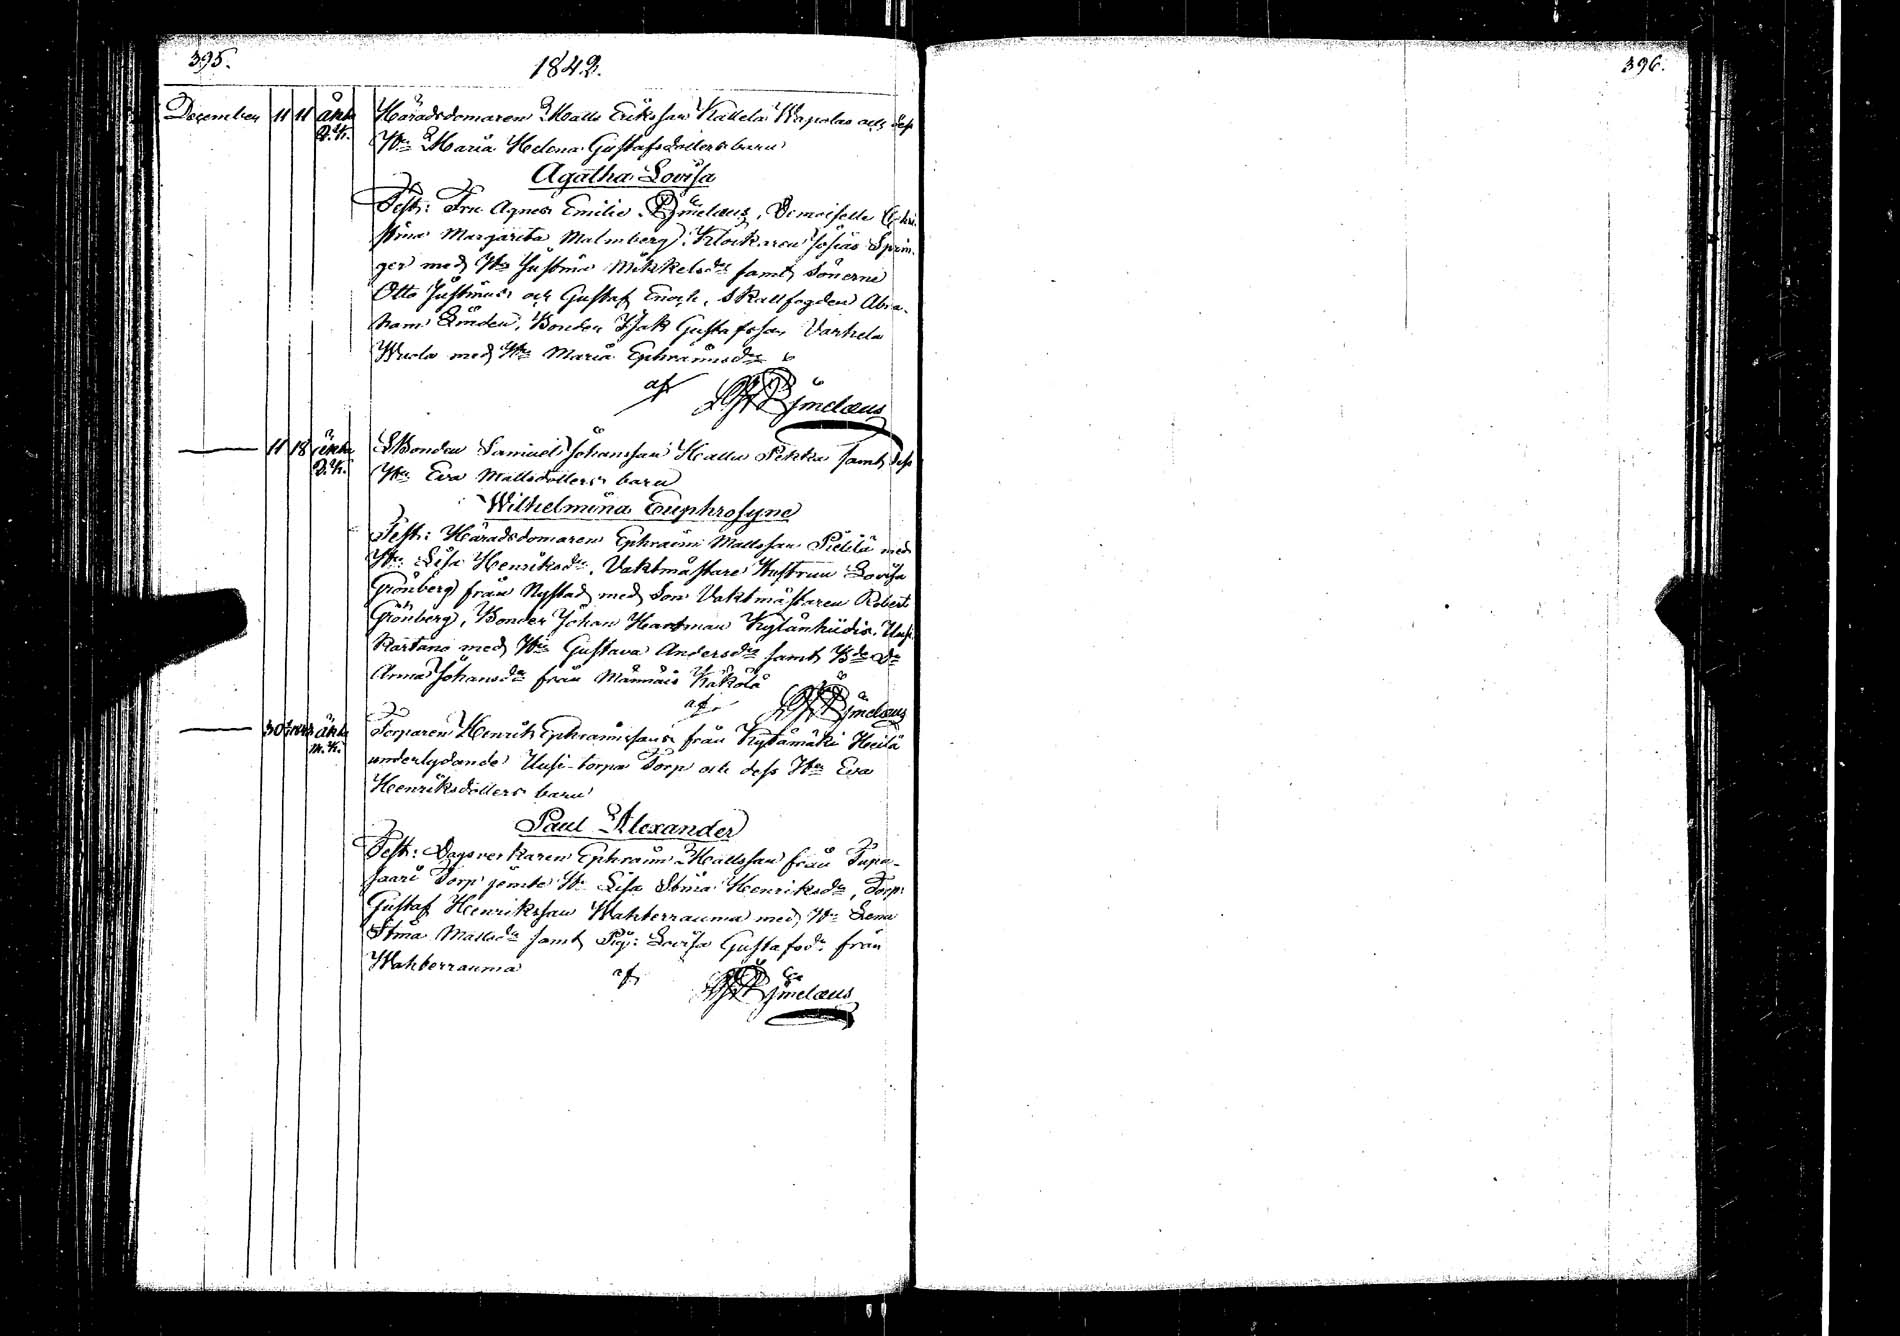 395.
1842.
396.
December 11 11 äkta Häradsdomaren Matts Eriksson Kallela Wapalas och dess
Q.K. Hu Maria Helena Gustafsdotters barn
Agatha Lovisa
Test: Fru Agnes Emilie Björnelaeus, Demoiselle Chri-
stina Margareta Malmberg, Klockaren Josias Sprin-
ger med Hu Justina Mikkelsdr samt Sönerne
Otto Justinus och Gustaf Enoch, Skallfogden Abra-
ham Linden, Bonden Isak Gustafsson Varhela
med Hu Maria Ephraimsdr
af Björnelaeus
11 18 äkta Bonden Samuel Johansson Kallu Pekka samt dess
Q.K. Hu Eva Mattsdotters barn
Wilhelmina Euphrosyne
Test: Häradsdomaren Ephraim Mattsson Pietilä med
Hu Lisa Henriksdr, Vaktmästare Hustrun Lovisa
Grönberg från Nystad med Son Vaktmästaren Robert
Grönberg, Bonden Johan Hartman Kylänhiidis, Uusi
Kartano med Hu Gustava Andersdr samt Bde Dr
Anna Johansdr från Männäis Käkölä
af Björnelaeus
30 äkta Torparen Henrik Ephraimssons från Kytämäki Heilä
M.K. underlydande Uusi-torpa Torp och dess Hu Eva
Henriksdotters barn
Paul Alexander
Test: Dagsverkaren Ephraim Mattsson från Tupa-
saari Torp jemte Hu Lisa Stina Henriksdr, Torp:
Gustaf Henriksson Wahterrauma med Hu Lena
Stina Mattsdr samt Pig: Lovisa Gustafsdr från
Wahterrauma af Björnelaeus